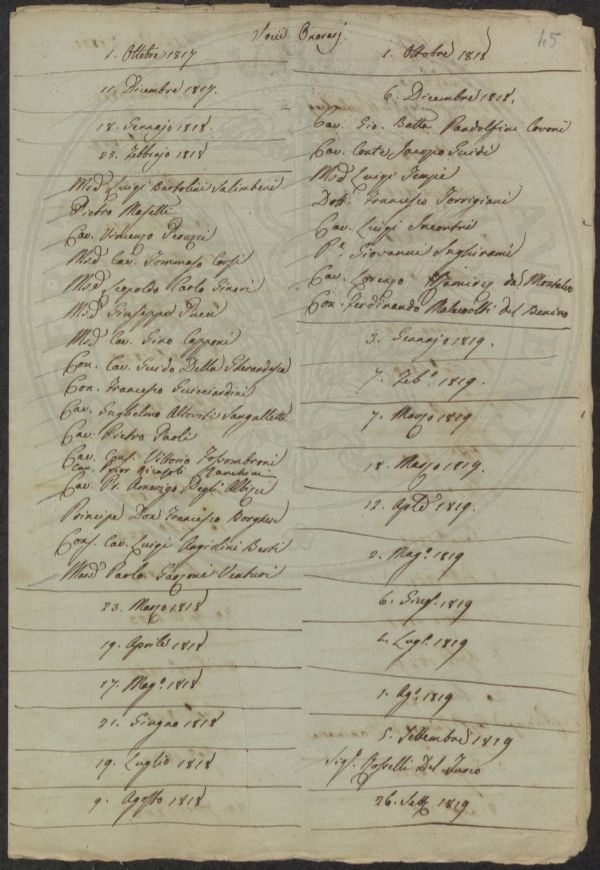 Socii Onorarj.
45
1. Ottobre 1817
11. Dicembre 1817.
18. Gennajo 1818.
22. Febbrajo 1818
Mrd Luigi Bartolini Salimbeni
Pietro Masetti
Cav. Vincenzo Peruzzi
Mrd Cav. Tommaso Corsi
Mrd Leopoldo Carlo Ginori
Mrd Giuseppe Pucci
Mrd Cav. Gino Capponi
Con. Cav. Guido Della Gherardesca
Con. Francesco Guicciardini
Cav. Guglielmo Altoviti Sangalletti
Cav. Pietro Paoli
Cav. Cons. Vittorio Fossombroni
Cav. Prior Ricasoli Zanchini
Cav. Pr. Amerigo Degli Albizi
Principe Don Francesco Borghese
Cons. Cav. Luigi Angiolini
Mard Paolo Garzoni Venturi
23. Marzo 1818
19. Aprile 1818
17. Mago. 1818
21. Giugno 1818
19. Luglio 1818
9. Agosto 1818
1. Ottobre 1818
6. Dicembre 1818.
Cav. Gio. Batta Pandolfini Covoni
Cav. Conte Jacopo Guidi
Mrd Luigi Tempi
Dott. Francesco Torrigiani
Cav. Luigi Incontri
Pe. Giovanni Inghirami
Cav. Lorenzo Ramirez da Montalvo
Con. Ferdinando Malevolti del Benino
3. Gennajo 1819.
7. Febo. 1819.
7. Marzo 1819
18. Marzo 1819.
12. 1819.
2. Mago. 1819
6. Giuo. 1819
4. Lugo. 1819
1. Ago. 1819
5. Settembre 1819
Sigr. Rosselli Del Turco
26. Sette 1819